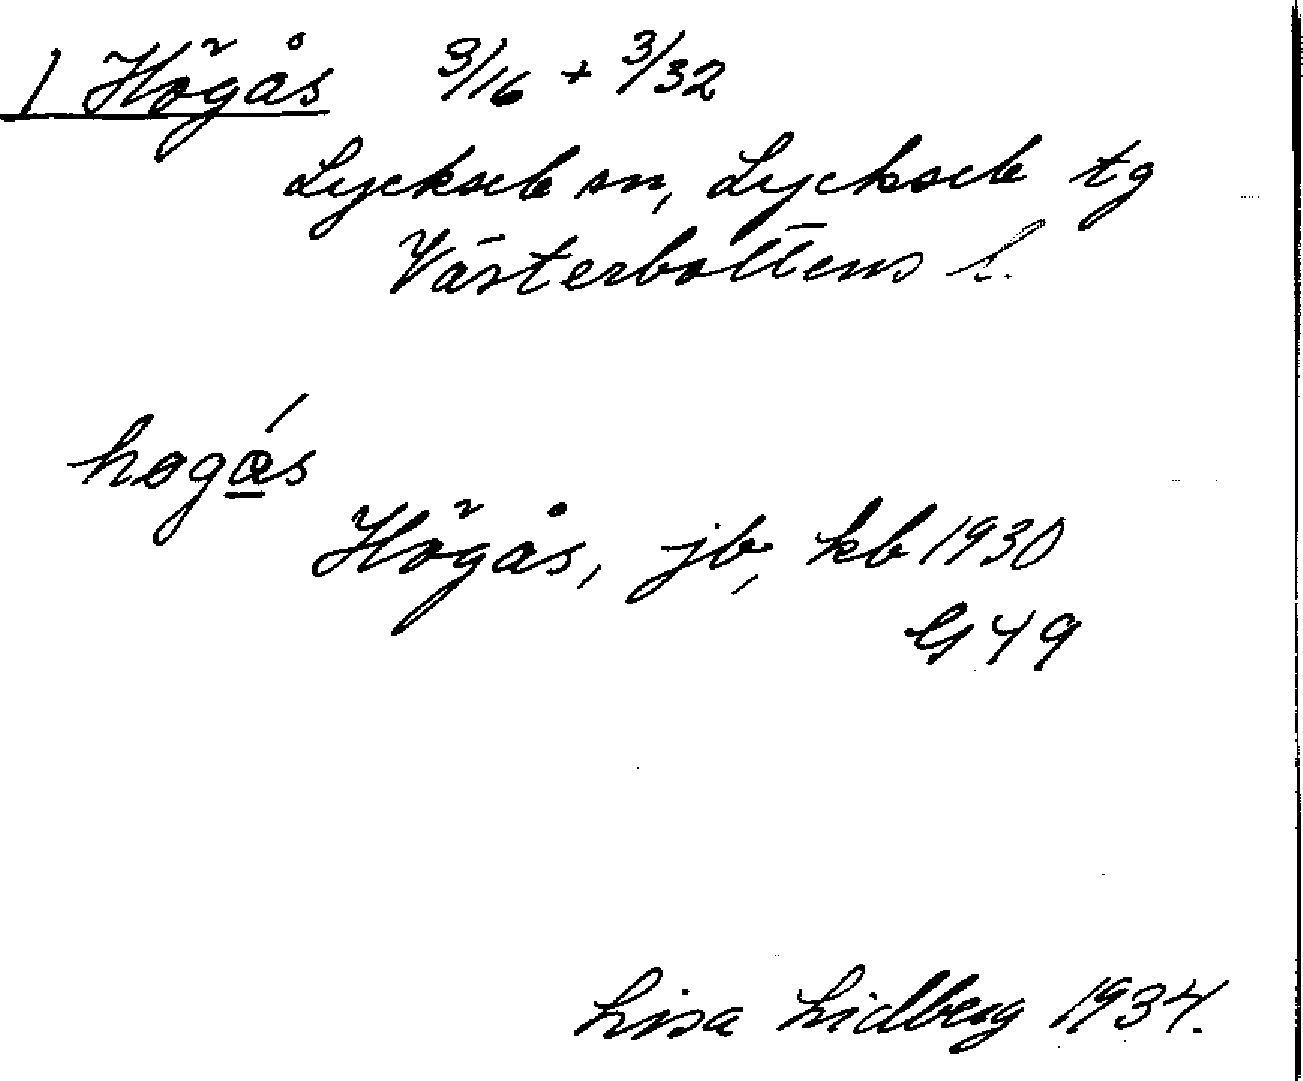 1 Högås 3/16 + 3/32
Lycksele sn, Lycksele tg
Västerbottens l.
hogás
Högås, jb, kb 1930
G 49
Lisa Lidberg 1934.